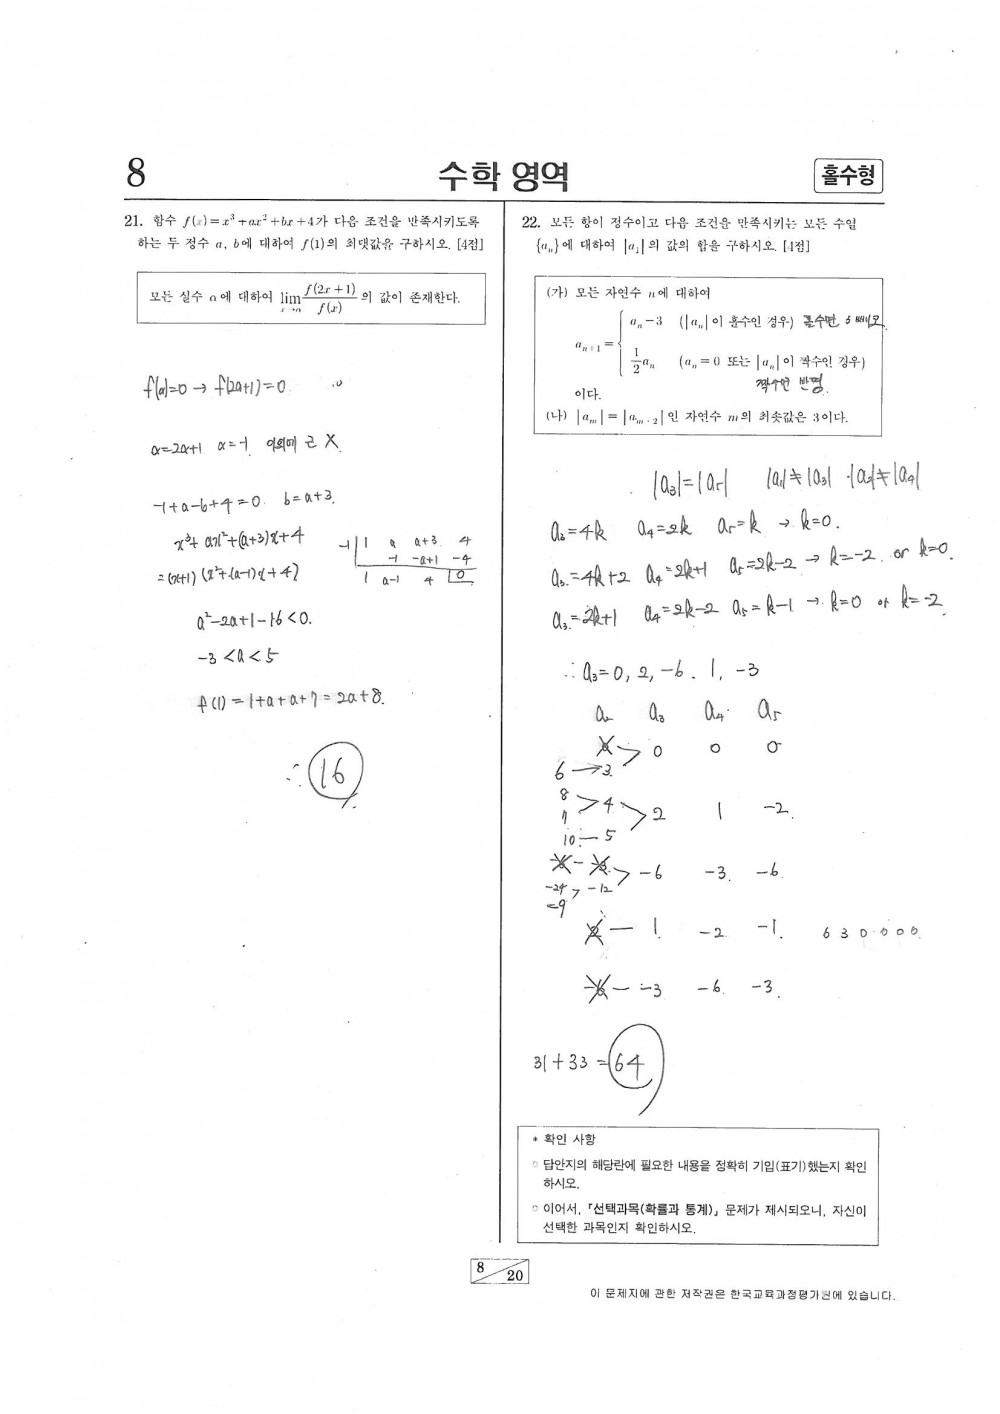 8
수학 영역
홀수형
21. 함수 f(x)=x³+ax²+bx+4가 다음 조건을 만족시키도록
하는 두 정수 a, b에 대하여 f(1)의 최댓값을 구하시오. [4점]
모든 실수 α에 대하여 lim x→α f(2x+1)/f(x) 의 값이 존재한다.
f(α)=0 → f(2α+1)=0
α=2α+1 α=-1 이외에 근 X
-1+a-b+4=0 b=a+3.
x³+ax²+(a+3)x+4
=(x+1)(x²+(a-1)x+4)
-1 | 1 a a+3 4
-1 -a+1 -4
1 a-1 4 0
a²-2a+1-16<0.
-3<a<5
f(1)=1+a+a+7=2a+8.
∴ 16
22. 모든 항이 정수이고 다음 조건을 만족시키는 모든 수열
{aₙ}에 대하여 |a₁|의 값의 합을 구하시오. [4점]
(가) 모든 자연수 n에 대하여
aₙ₊₁ = { aₙ-3 (|aₙ|이 홀수인 경우) 홀수면
1/2 aₙ (aₙ=0 또는 |aₙ|이 짝수인 경우)
짝수면 반띵.
이다.
(나) |aₘ|=|aₘ₊₂|인 자연수 m의 최솟값은 3이다.
|a₃|=|a₅| |a₁|≠|a₃| |a₂|≠|a₄|
a₃=4k a₄=2k a₅=k → k=0.
a₃=4k+2 a₄=2k+1 a₅=2k-2 → k=-2 or k=0.
a₃=2k+1 a₄=2k-2 a₅=k-1 → k=0 or k=-2
∴ a₃=0, 2, -6. 1, -3
a₂ a₃ a₄ a₅
0 0 0
6 → 3.
8 > 4 > 2 1 -2.
7
10 - 5
> -6 -3. -6.
-24 > -12
-9
2 - 1. -2 -1. 6 3 0 0 0 0
-6 - -3 -6. -3.
31+33=64
* 확인 사항
○ 답안지의 해당란에 필요한 내용을 정확히 기입(표기)했는지 확인
하시오.
○ 이어서, 「선택과목(확률과 통계)」 문제가 제시되오니, 자신이
선택한 과목인지 확인하시오.
8/20
이 문제지에 관한 저작권은 한국교육과정평가원에 있습니다.